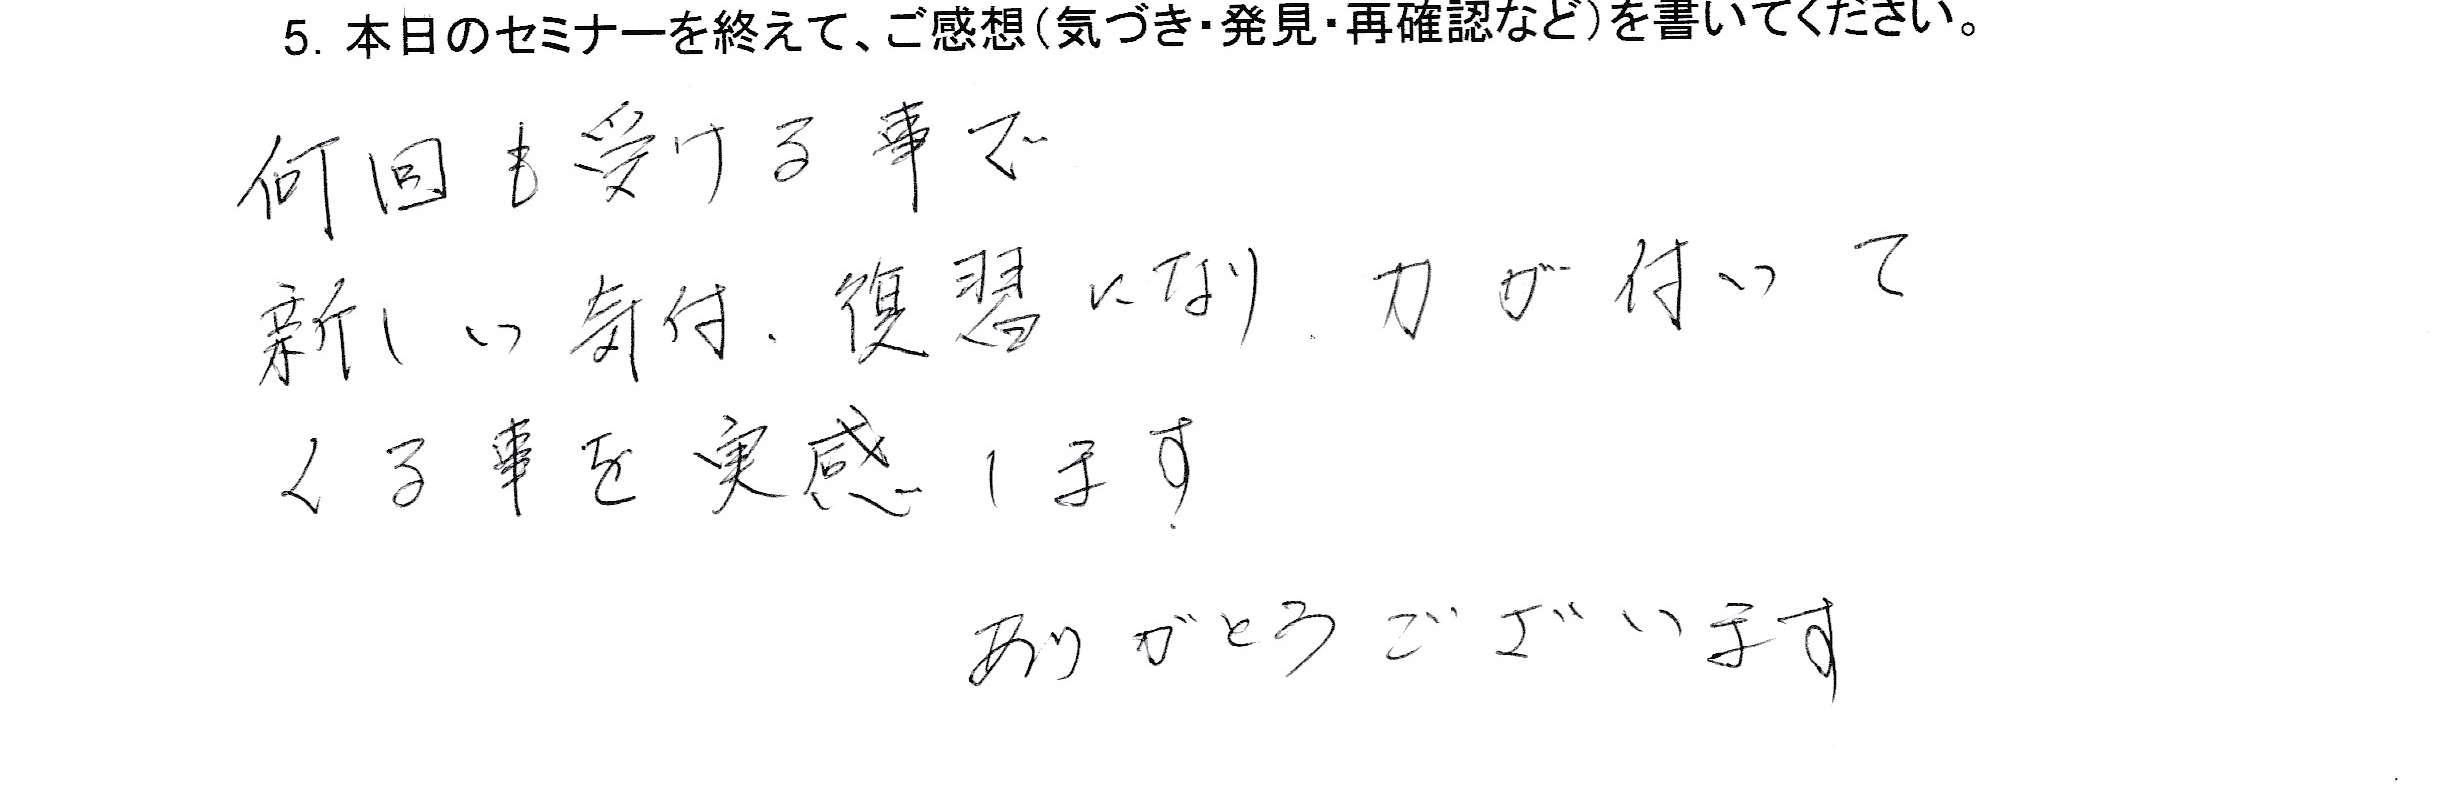 5. 本日のセミナーを終えて、ご感想（気づき・発見・再確認など）を書いてください。
何回も受ける事で
新しい気付、復習になり、力が付いて
くる事を実感します
ありがとうございます